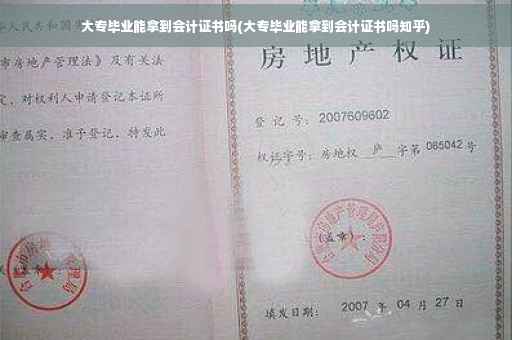 大专毕业能拿到会计证书吗(大专毕业能拿到会计证书吗知乎)
市房地产管理法》及有关法
定，对权利人申请登记本证所
审查属实，准予登记，特发此
房地产权证
登记号：2007609602
权证字号：房地权 庐 字第 085042 号
(盖章)：
填发日期： 2007 年 04 月 27 日